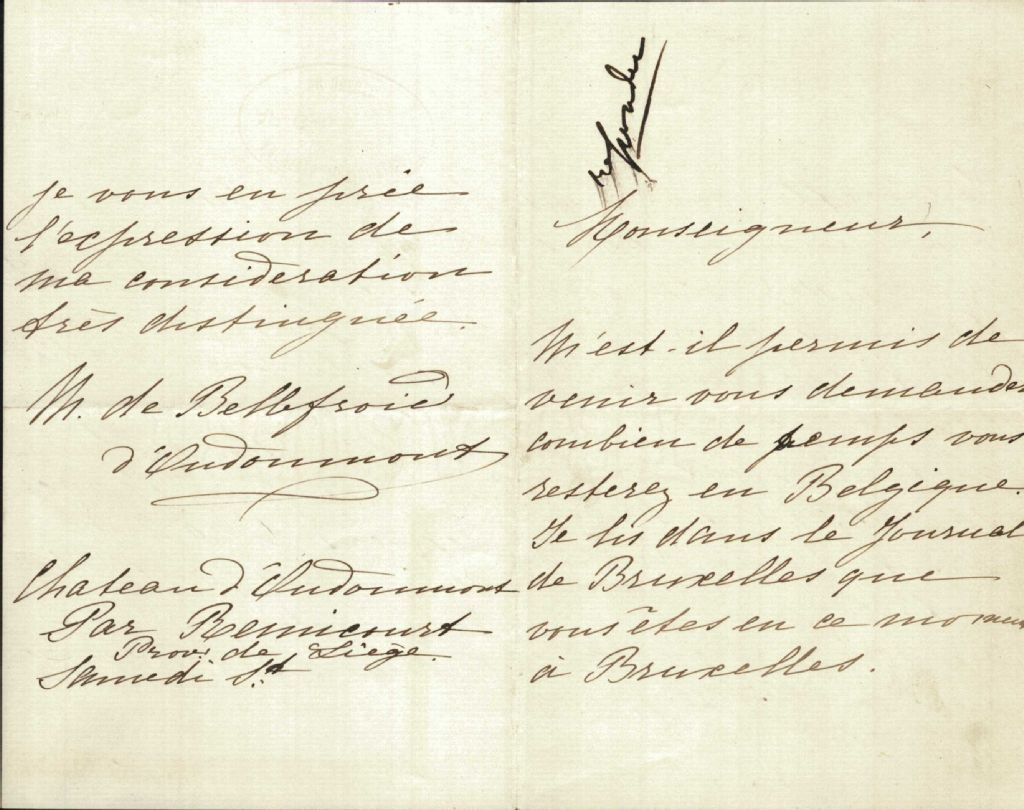 repondu
Monseigneur,
M'est-il permis de
venir vous demander
combien de temps vous
resterez en Belgique.
Je lis dans le Journal
de Bruxelles que
vous êtes en ce moment
à Bruxelles.
je vous en prie
l'expression de
ma consideration
très distinguée.
M. de Bellefroid
d'Oudoumont
Chateau d'Oudoumont
Par Remicourt
Prov. de Liège.
Samedi St